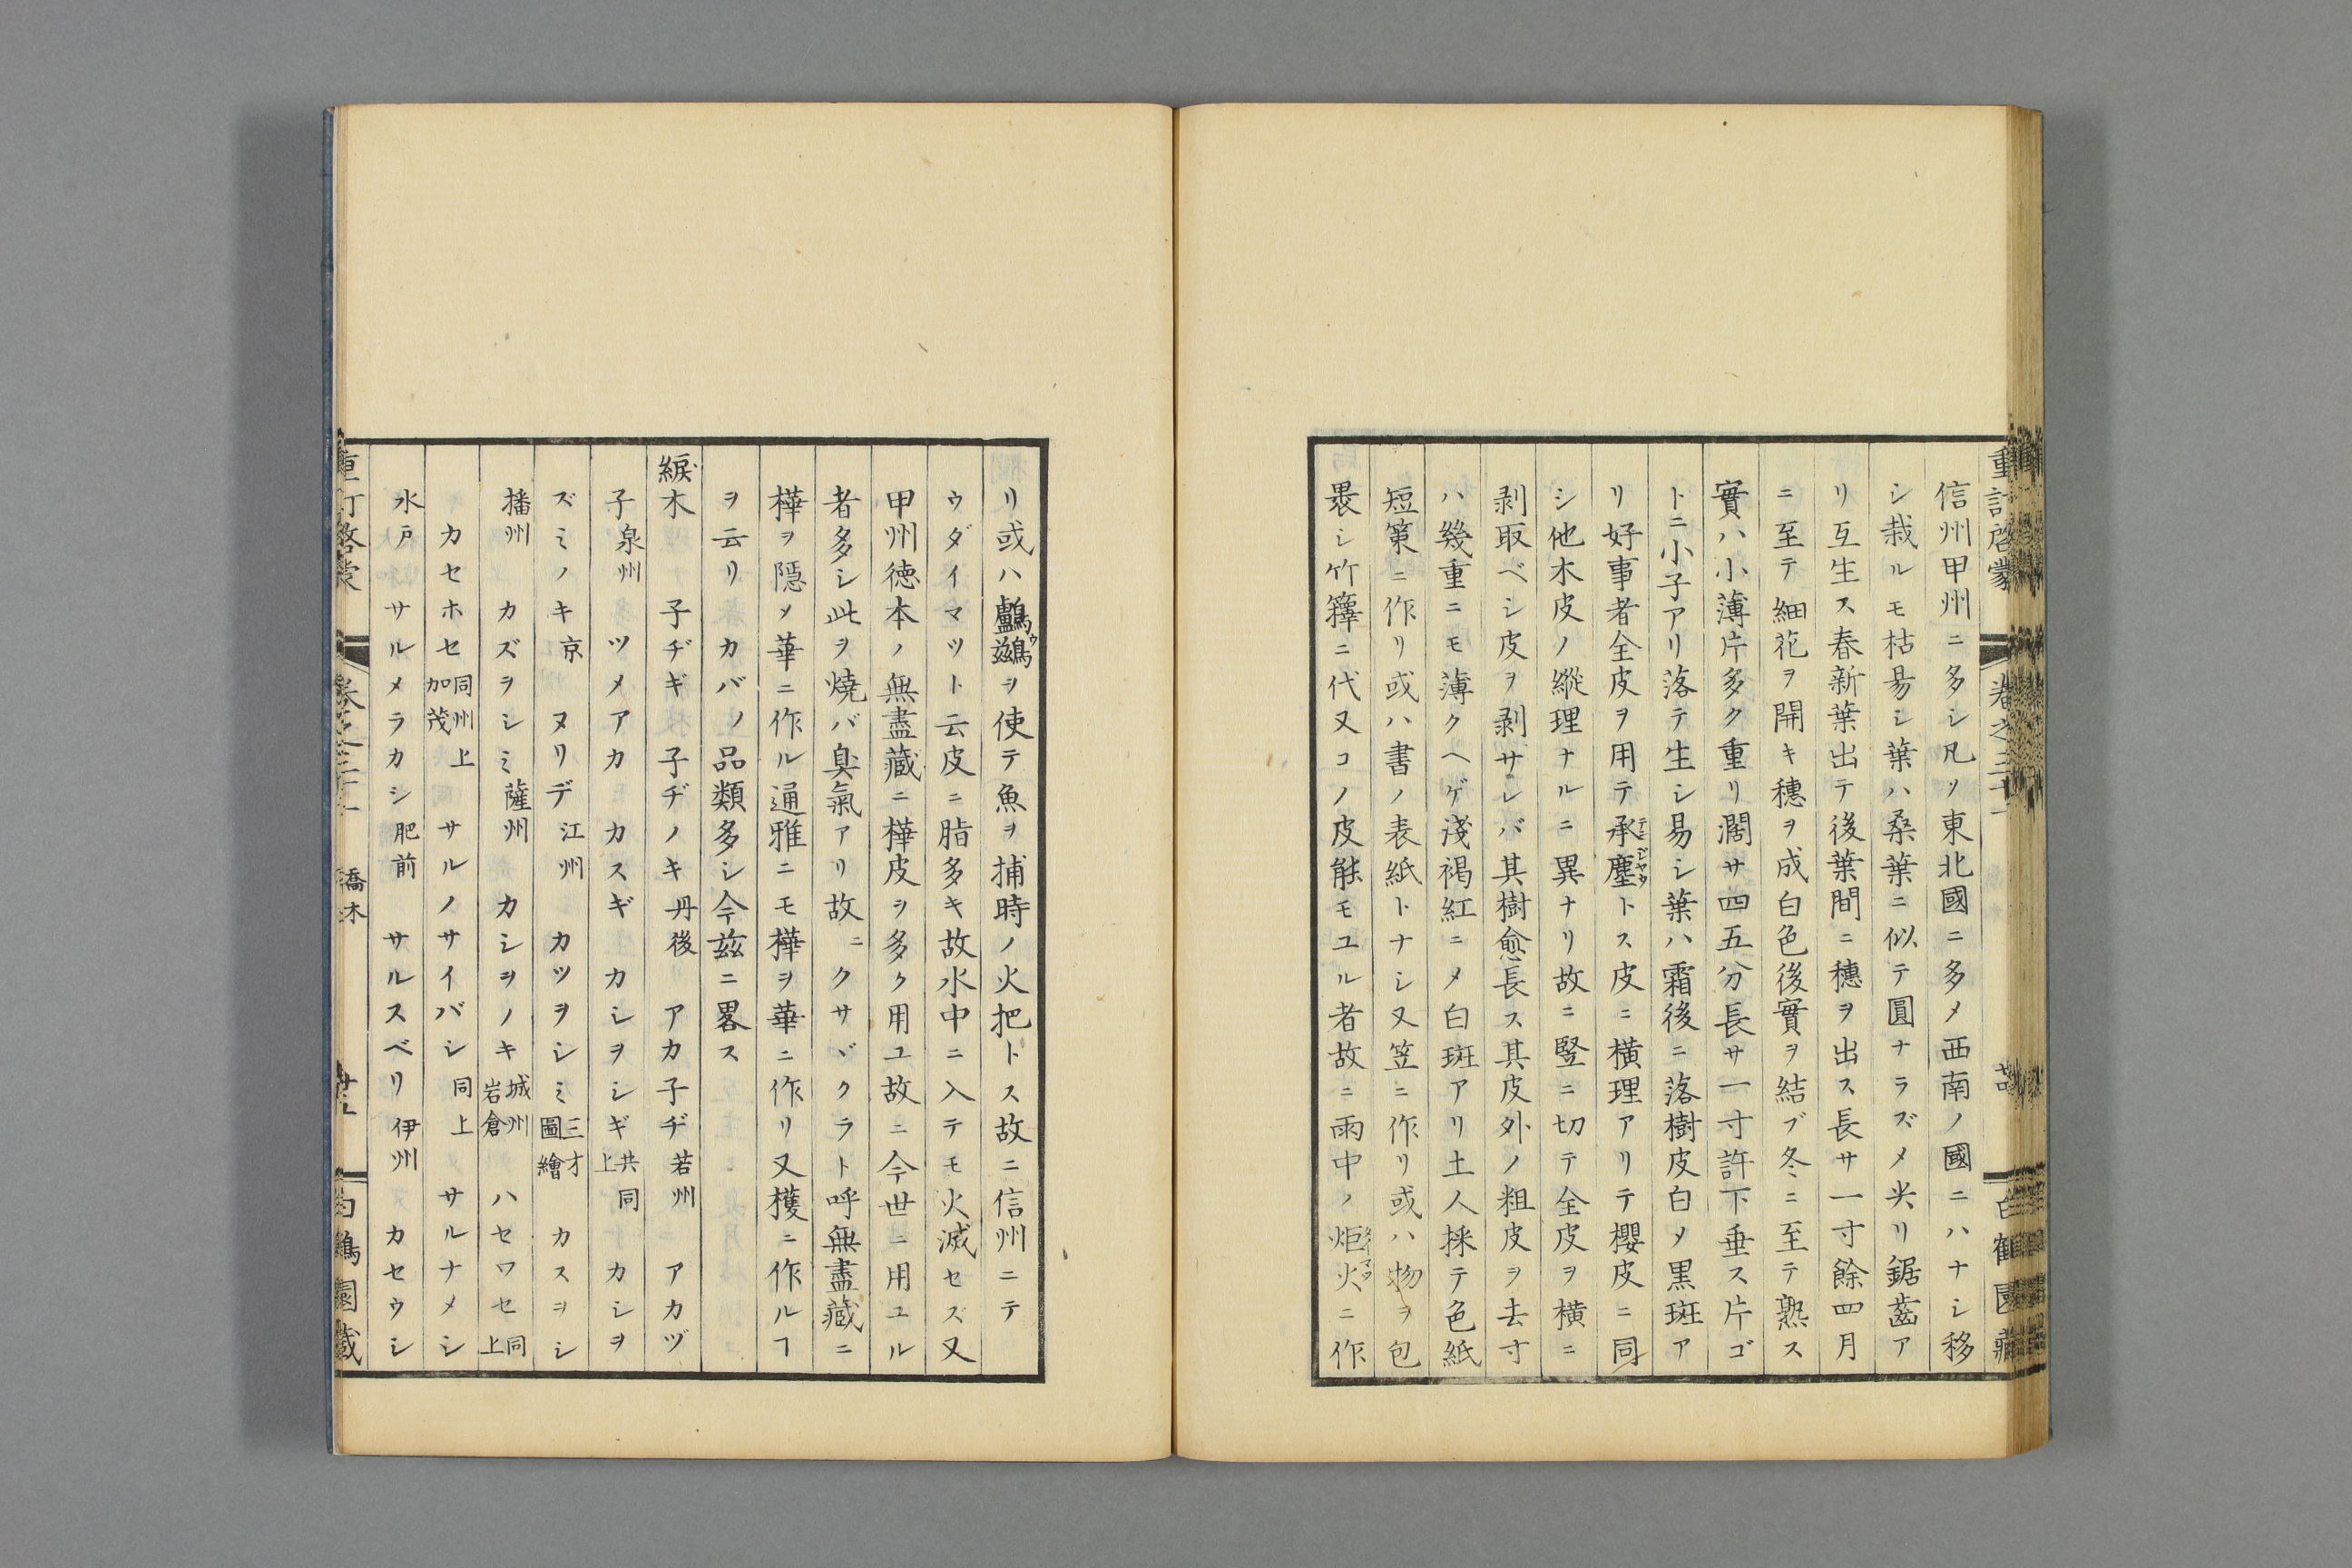 信州甲州ニ多シ凡ソ東北國ニ多メ西南ノ國ニハナシ移
シ栽ルモ枯易シ葉ハ桑葉ニ似テ圓ナラズメ尖リ鋸齒ア
リ互生ス春新葉出テ後葉間ニ穗ヲ出ス長サ一寸餘四月
ニ至テ細花ヲ開キ穗ヲ成白色後實ヲ結ブ冬ニ至テ熟ス
實ハ小薄片多ク重リ濶サ四五分長サ一寸許下垂ス片ゴ
トニ小子アリ落テ生シ易シ葉ハ霜後ニ落樹皮白メ黒斑ア
リ好事者全皮ヲ用テ承塵トス皮ニ橫理アリテ櫻皮ニ同
シ他木皮ノ縱理ナルニ異ナリ故ニ竪ニ切テ全皮ヲ橫ニ
剥取ベシ皮ヲ剥サレバ其樹愈長ス其皮外ノ粗皮ヲ去寸
ハ幾重ニモ薄クヘゲ淺褐紅ニメ白斑アリ土人採テ色紙
短策ニ作リ或ハ書ノ表紙トナシ又笠ニ作リ或ハ物ヲ包
裹シ竹籜ニ代又コノ皮能モユル者故ニ雨中ノ炬火ニ作
リ或ハ鸕鷀ヲ使テ魚ヲ捕時ノ火把トス故ニ信州ニテ
ウダイマツト云皮ニ脂多キ故水中ニ入テモ火滅セズ又
甲州徳本ノ無盡藏ニ樺皮ヲ多ク用ユ故ニ今世ニ用ユル
者多シ此ヲ燒バ臭氣アリ故ニクサヾクラト呼無盡藏ニ
樺ヲ隱メ華ニ作ル通雅ニモ樺ヲ華ニ作リ又檴ニ作ルヿ
ヲ云リカバノ品類多シ今茲ニ畧ス
綟木 子ヂギ 子ヂノキ丹後 アカ子ヂ若州 アカヅ
子泉州 ツメアカ カスギ カシヲシギ共同上 カシヲ
ズミノキ京 ヌリデ江州 カツヲシミ三才圖繪 カスヲシ
播州 カズヲシミ薩州 カシヲノキ城州岩倉 ハセワセ同上
カセホセ同州上加茂 サルノサイバシ同上 サルナメシ
水戸 サルメラカシ肥前 サルスベリ伊州 カセウシ
重訂啓蒙 卷之三十一 喬木 廿五